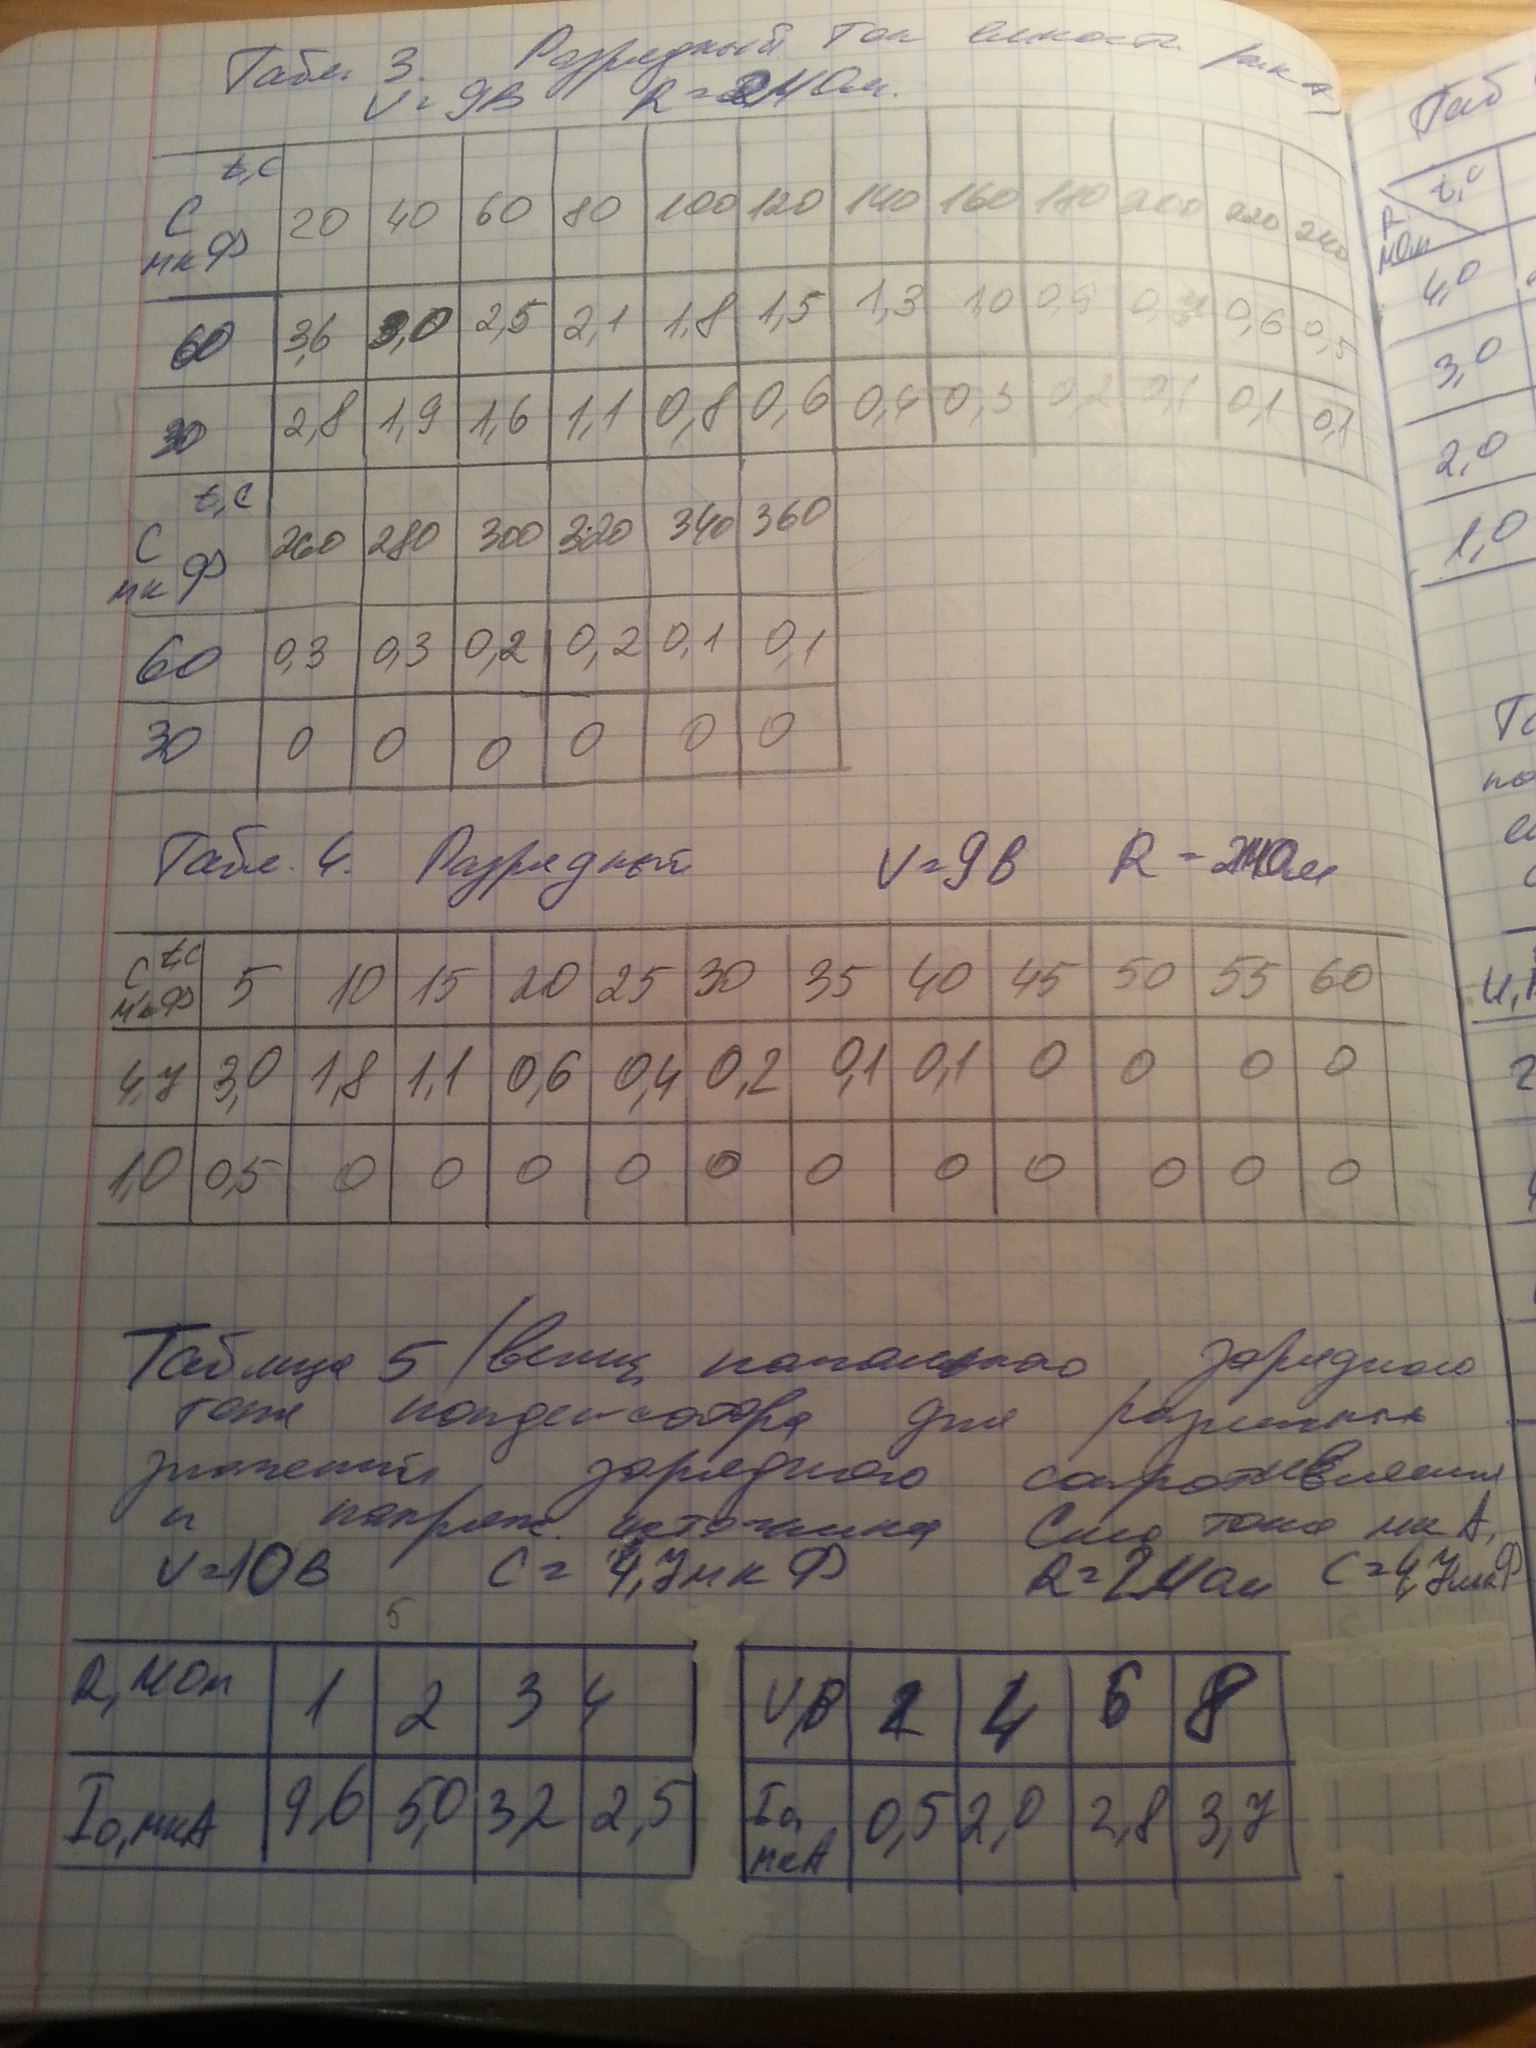 Табл. 3. Разрядный ток
V=9В R=2МОм.
t,c
C мкФ 20 40 60 80 100 120 140 160 180 200 220 240
60 3,6 3,0 2,5 2,1 1,8 1,5 1,3 1,0 0,9 0,6 0,5
30 2,8 1,9 1,6 1,1 0,8 0,6 0,4 0,3 0,2 0,1 0,1 0,1
t,c
C мкФ 260 280 300 320 340 360
60 0,3 0,3 0,2 0,2 0,1 0,1
30 0 0 0 0 0 0
Табл. 4. Разрядный V=9В R=2МОм
t,c
C, мкФ 5 10 15 20 25 30 35 40 45 50 55 60
4,7 3,0 1,8 1,1 0,6 0,4 0,2 0,1 0,1 0 0 0 0
1,0 0,5 0 0 0 0 0 0 0 0 0 0 0
Таблица 5 зарядного
тока конденсатора для различных
значений зарядного сопротивления
и напряж. источника Сила тока мкА,
V=10В C=4,7мкФ R=2МОм C=4,7мкФ
5
R, МОм 1 2 3 4
I0, мкА 9,6 5,0 3,2 2,5
V,В 2 4 6 8
I0, мкА 0,5 2,0 2,8 3,7
Таб
t,c
R МОм
4,0
3,0
2,0
1,0